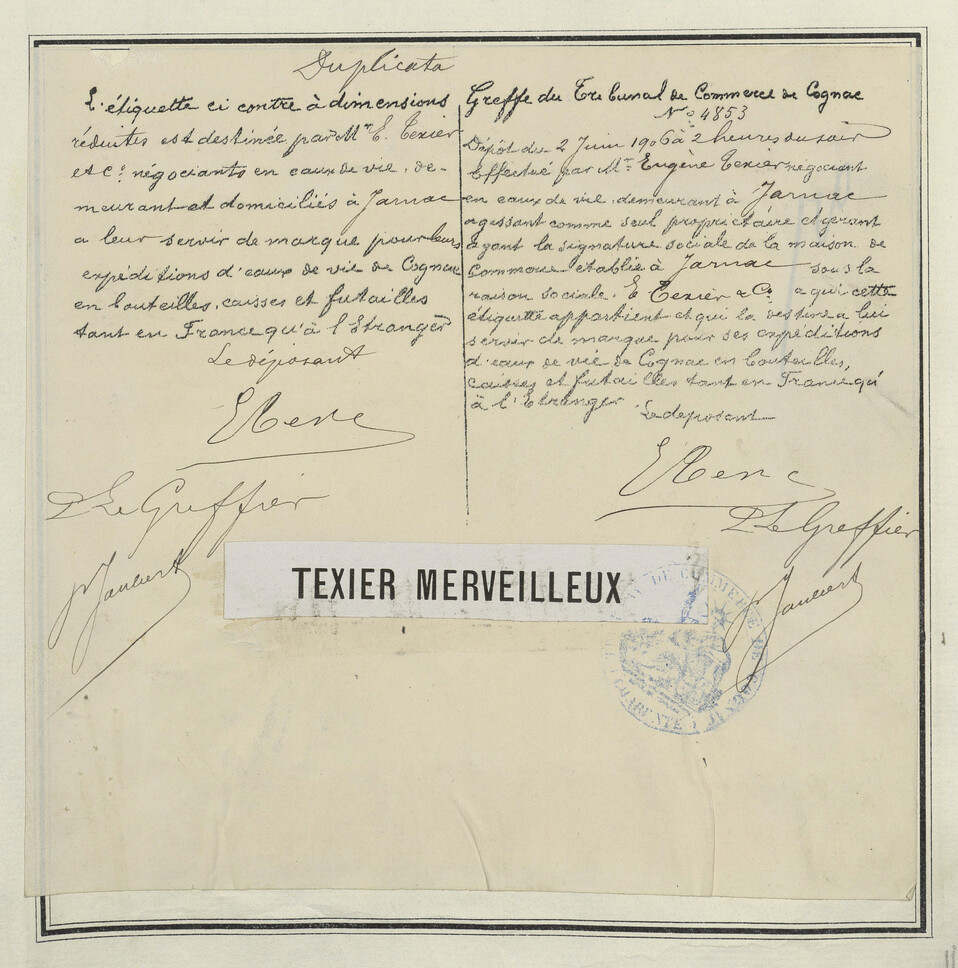 Duplicata
L'étiquette ci contre à dimensions
réduites est destinée par Mr E. Texier
et Cie négociants en eaux de vie, de-
meurant et domiciliés à Jarnac
a leur servir de marque pour leurs
expéditions d'eaux de vie de Cognac
en bouteilles, caisses et futailles
tant en France qu'à l'Etranger
Le déposant
P Le Greffier
Greffe du Tribunal de Commerce de Cognac
No 4853
Dépôt du 2 Juin 1906 à 2 heures du soir
Effectué par Mr Eugène Texier négociant
en eaux de vie, demeurant à Jarnac
agissant comme seul propriétaire et gérant
ayant la signature sociale de la maison de
Commerce établie à Jarnac sous la
raison sociale. E Texier & Co a qui cette
étiquette appartient et qui la destine a lui
servir de marque pour ses expéditions
d'eaux de vie de Cognac en bouteilles,
caisses et futailles tant en France qu'
à l'Etranger
Le déposant
P Le Greffier
TEXIER MERVEILLEUX
DE COMMERCE DE COGNAC
CHARENTE